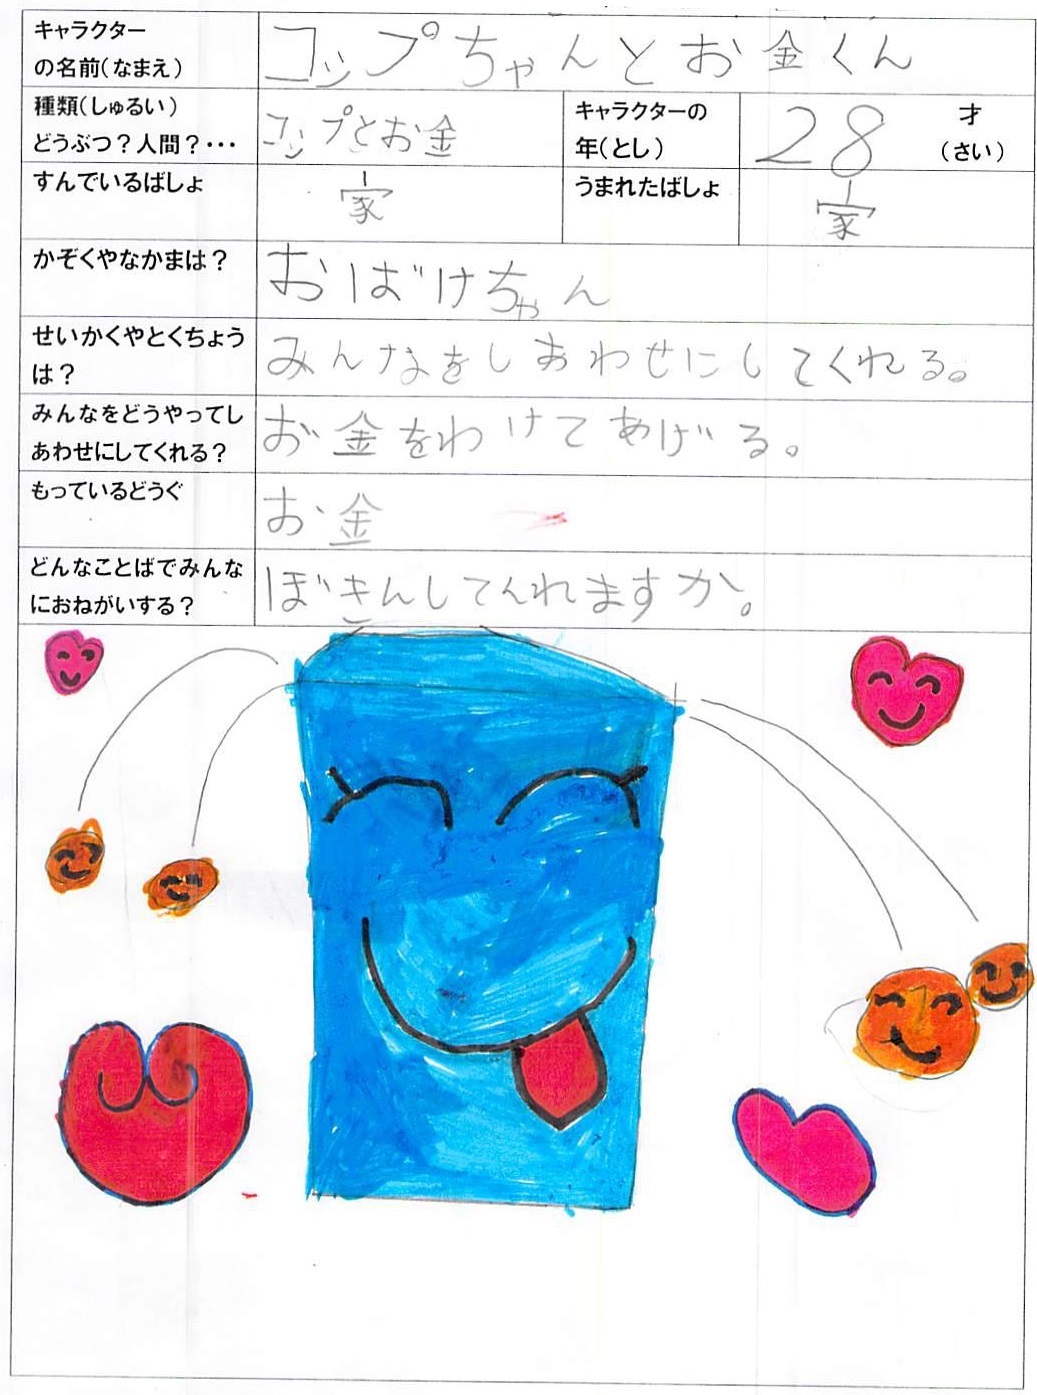 キャラクター
の名前(なまえ)
コップちゃんとお金くん
種類(しゅるい)
どうぶつ?人間?・・・
コップとお金
キャラクターの
年(とし)
28
才
(さい)
すんでいるばしょ
家
うまれたばしょ
家
かぞくやなかまは?
おばけちゃん
せいかくやとくちょう
は?
みんなをしあわせにしてくれる。
みんなをどうやってし
あわせにしてくれる?
お金をわけてあげる。
もっているどうぐ
お金
どんなことばでみんな
におねがいする?
ぼきんしてくれますか。